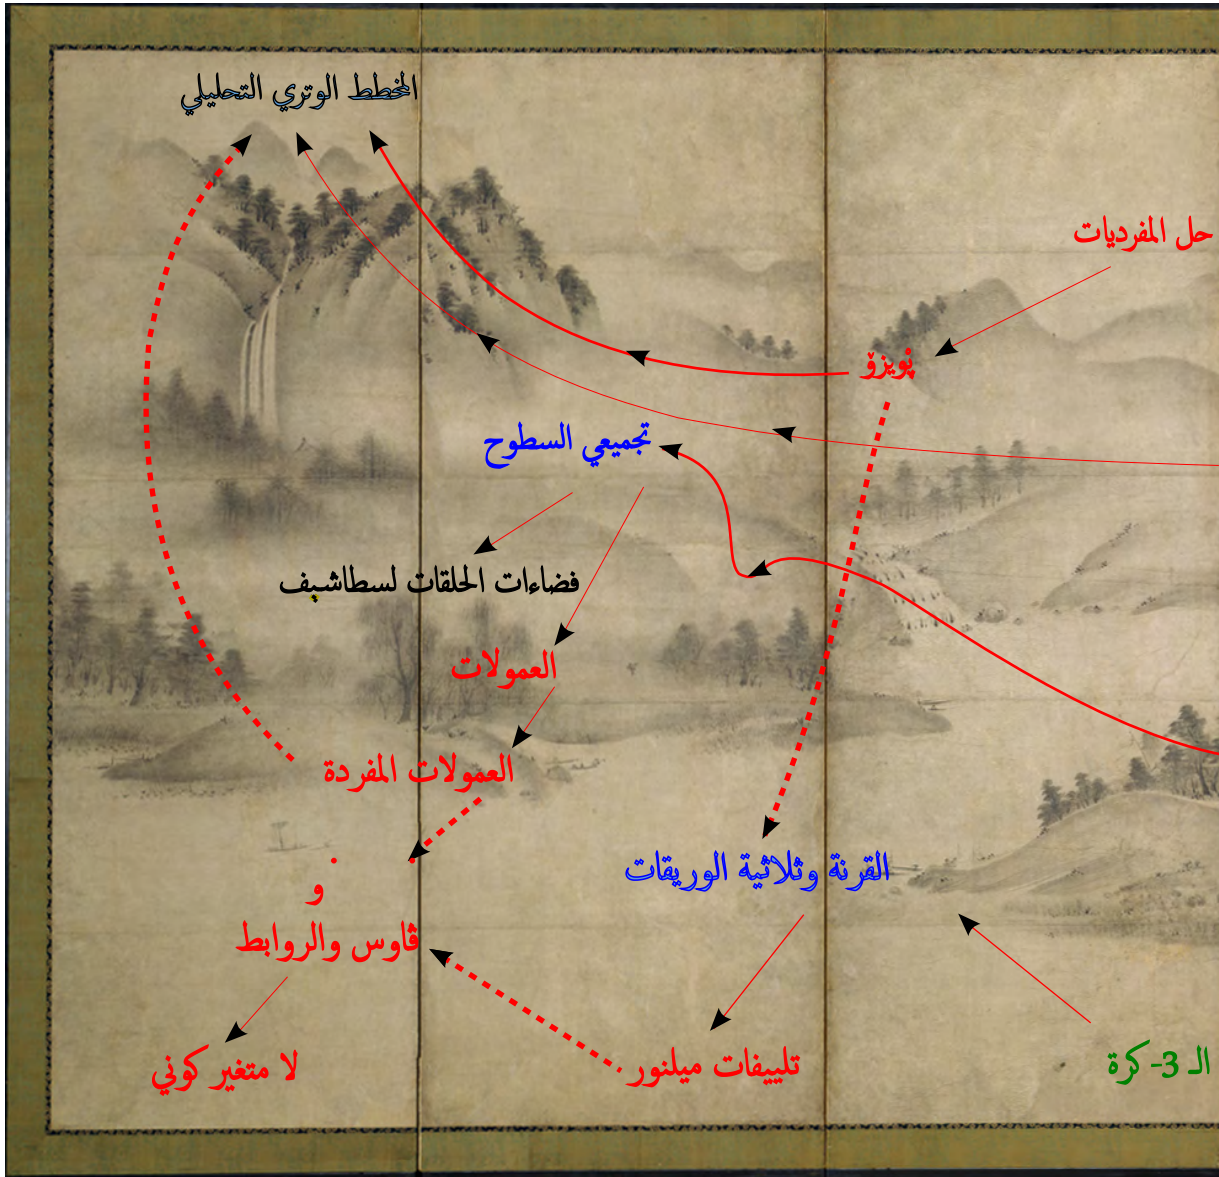 المخطط الوتري التحليلي
حل المفرديات
پْويزۆ
تجميعي السطوح
فضاءات الحلقات لسطاشيف
العمولات
العمولات المفردة
القرنة وثلاثية الوريقات
و
ڤاوس والروابط
لا متغير كوني
تلييفات ميلنور
الـ 3- كرة